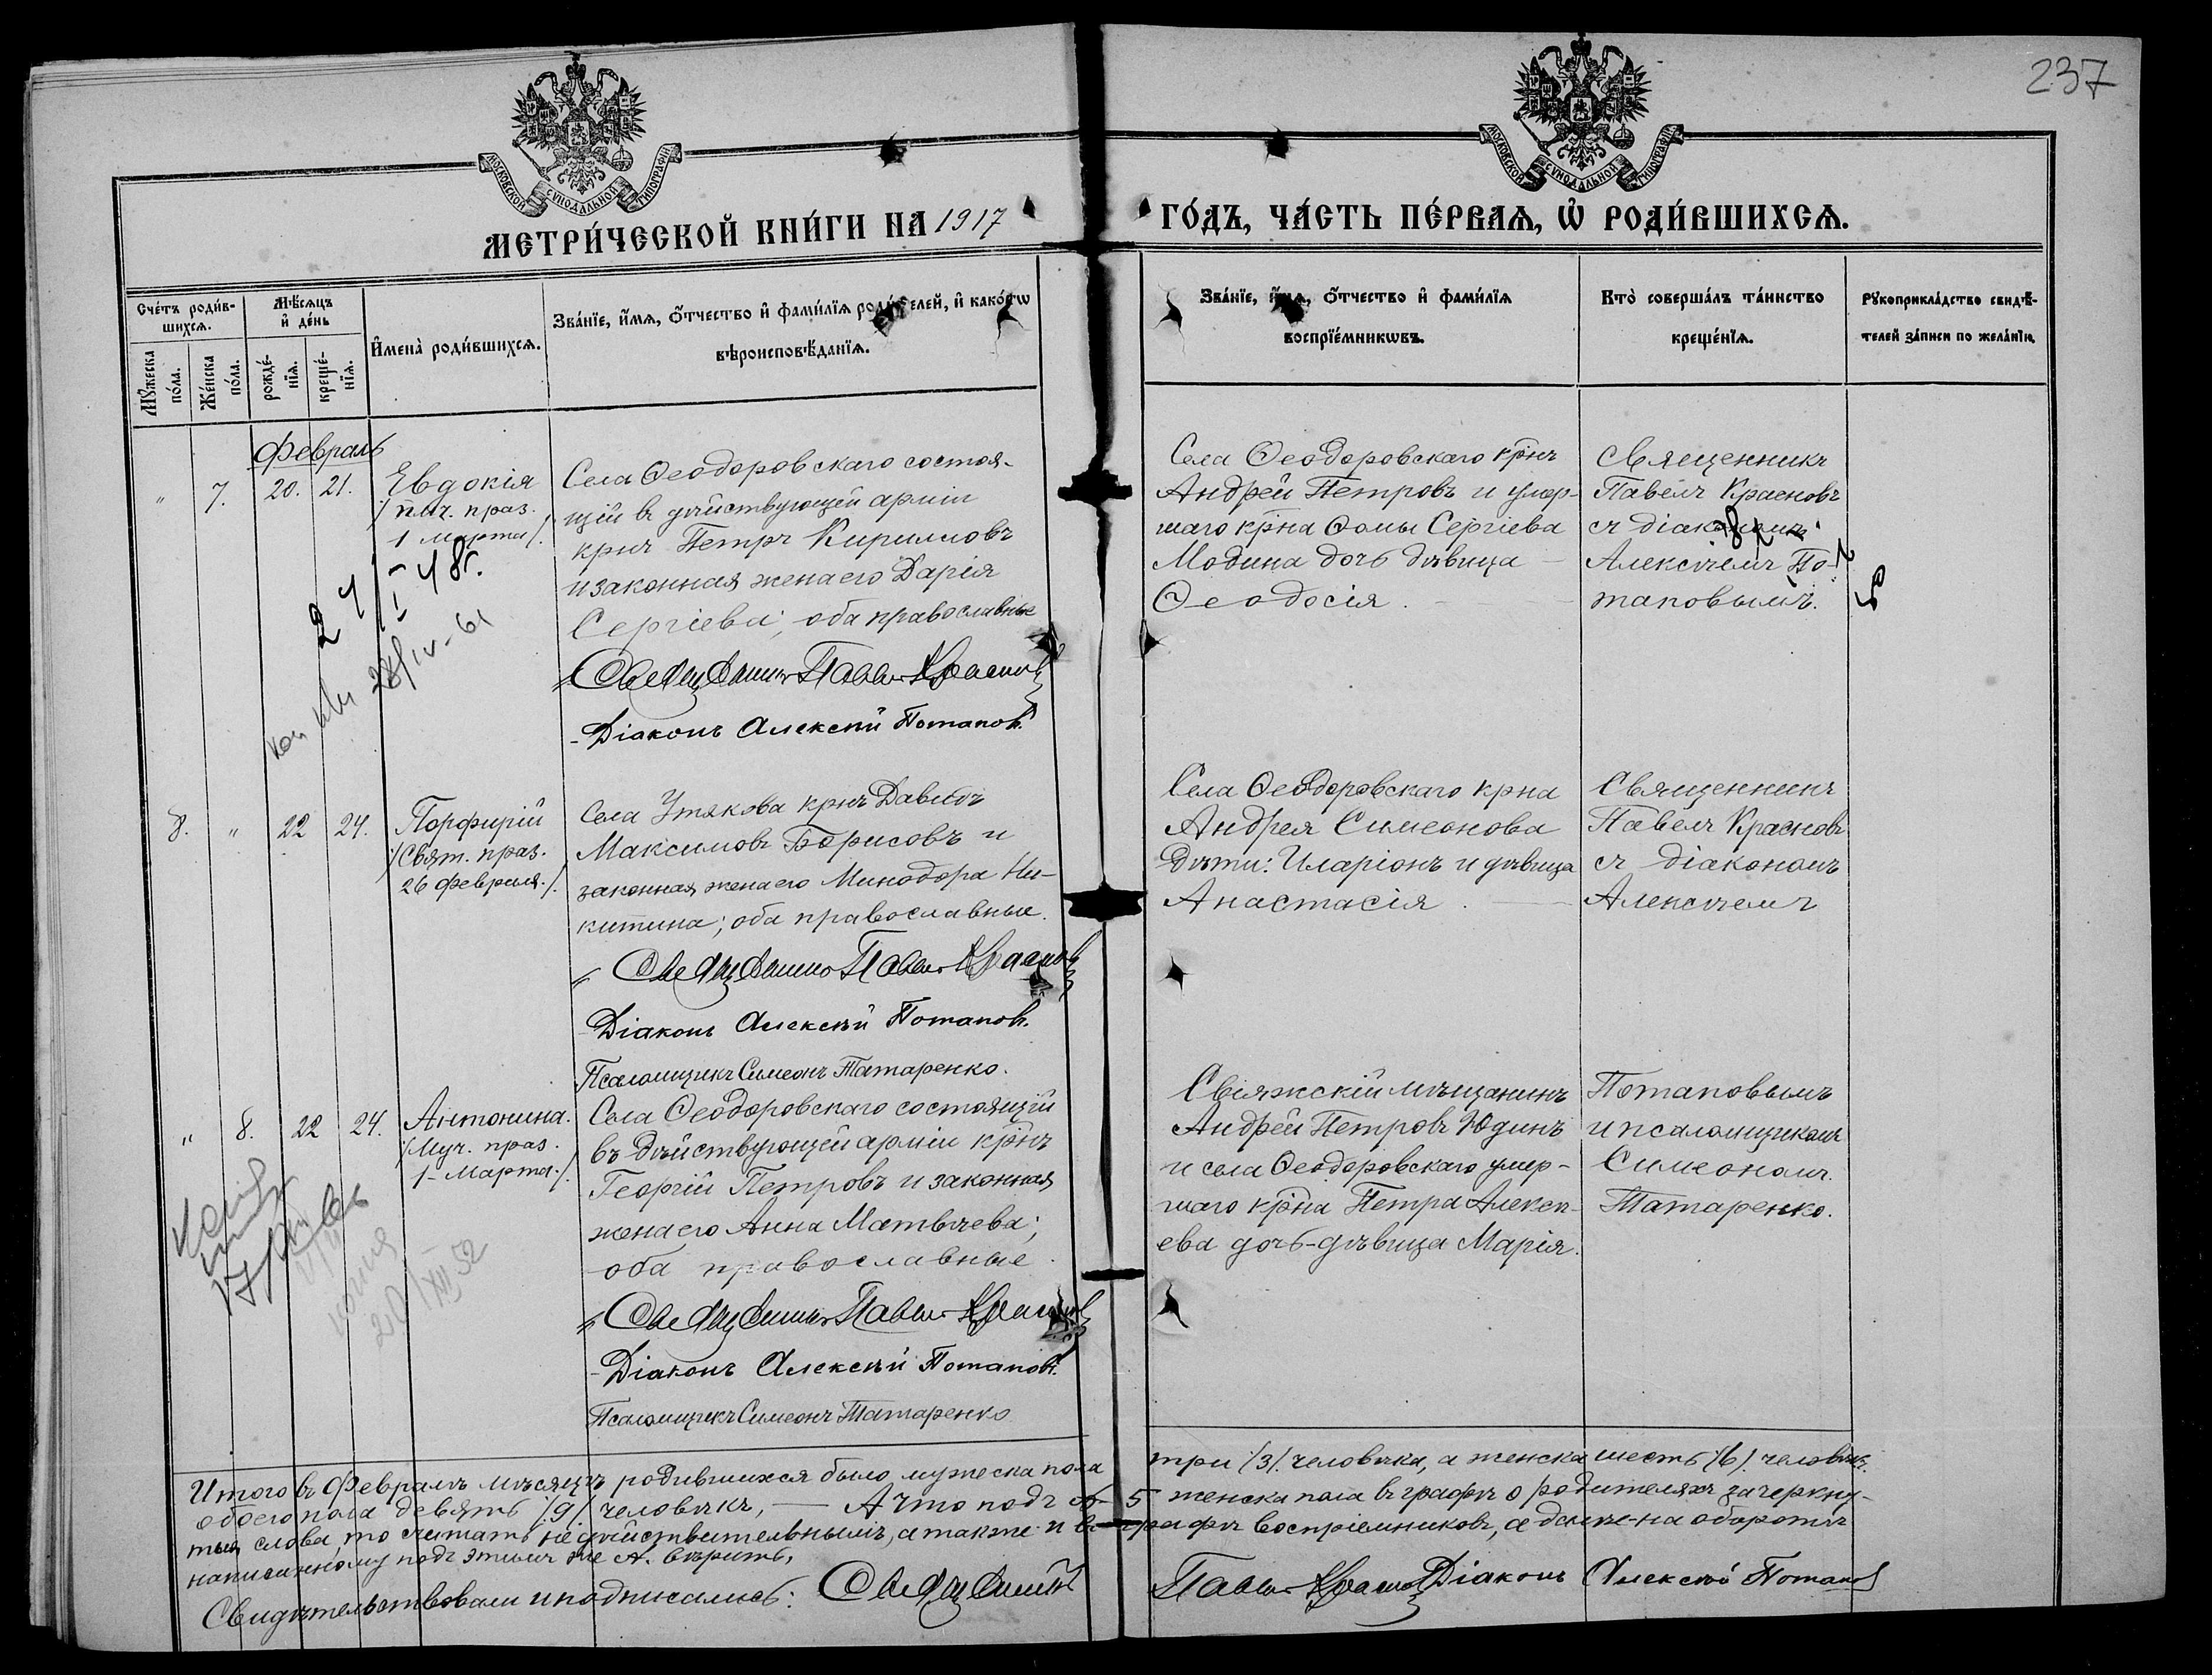 237
МОСКОВСКОЙ СѴНОДАЛЬНОЙ ТИПОГРАФІИ
МОСКОВСКОЙ СѴНОДАЛЬНОЙ ТИПОГРАФІИ
МЕТРИ́ЧЕСКОЙ КНИ́ГИ НА 1917
ГО́ДЪ, ЧА́СТЬ ПЕ́РВАѦ, Ѿ РОДИ́ВШИХСѦ.
Сче́тъ роди́в-
шихсѧ.
Мѣ́сѧцъ
и҆ де́нь
Мꙋ́жеска
по́ла.
Же́нска
по́ла.
рожде́-
нїѧ.
креще́-
нїѧ.
И҆мена̀ роди́вшихсѧ.
Зва́нїе, и҆́мѧ, ѻ҆́тчество и҆ фами́лїѧ роди́телей, и҆ како́гѡ
вѣроисповѣ́данїѧ.
Зва́нїе, и҆́мѧ, ѻ҆́тчество и҆ фами́лїѧ
воспрїе́мникѡвъ.
Кто̀ соверша́лъ та́инство
креще́нїѧ.
Рꙋкоприкла́дство свидѣ́-
телей за́писи по жела́нїю.
Февраль
" 7. 20. 21.
Евдокія
/пмч. праз.
1 марта/.
Села Ѳеодоровскаго состоя-
щій въ дѣйствующей арміи
крнъ Петръ Кирилловъ
и законная жена его Дарія
Сергіева; оба православные
Священникъ Павелъ Красновъ
Діаконъ Алексѣй Потаповъ.
Села Ѳеодоровскаго крнъ
Андрей Петровъ и умер-
шаго крна Ѳомы Сергіева
Модина дочь дѣвица
Ѳеодосія.
Священникъ
Павелъ Красновъ
съ діакономъ
Алексѣемъ По-
таповымъ.
24/I-48г.
28/IV-61
8. " 22 24.
Порфирій
/Свят. праз.
26 февраля./.
Села Утякова крнъ Давидъ
Максимовъ Борисовъ и
законная жена его Минодора Ни-
китина; оба православные.
Священникъ Павелъ Красновъ
Діаконъ Алексѣй Потаповъ.
Псаломщикъ Симеонъ Татаренко.
Села Ѳеодоровскаго крна
Андрея Симеонова
дѣти: Иларіонъ и дѣвица
Анастасія.
Священникъ
Павелъ Красновъ
съ діакономъ
Алексѣемъ
" 8. 22 24.
Антонина.
/Муч. праз.
1-Марта./.
Села Ѳеодоровскаго состоящій
въ дѣйствующей арміи крнъ
Георгій Петровъ и законная
жена его Анна Матвѣева;
оба православные.
Священникъ Павелъ Красновъ
Діаконъ Алексѣй Потаповъ.
Псаломщикъ Симеонъ Татаренко
Свіяжскій мѣщанинъ
Андрей Петровъ Юдинъ
и села Ѳеодоровскаго умер-
шаго крна Петра Алексѣ-
ева дочь-дѣвица Марія.
Потаповымъ
и псаломщикомъ
Симеономъ
Татаренко.
копия
20/XII 52
Итого въ Февралѣ мѣсяцѣ родившихся было мужеска пола три /3/. человѣка, а женска шесть /6/. человѣкъ.
обоего пола девять /9/. человѣкъ, — А что подъ № 5 женска пола въ графѣ о родителяхъ зачеркну-
тыя слова, то считать недѣйствительнымъ, а также и въ графѣ воспріемниковъ, а далѣе-на оборотѣ
написанному подъ этимъ же №. вѣрить,
Свидѣтельствовали и подписались: Священникъ Павелъ Красновъ Діаконъ Алексѣй Потаповъ